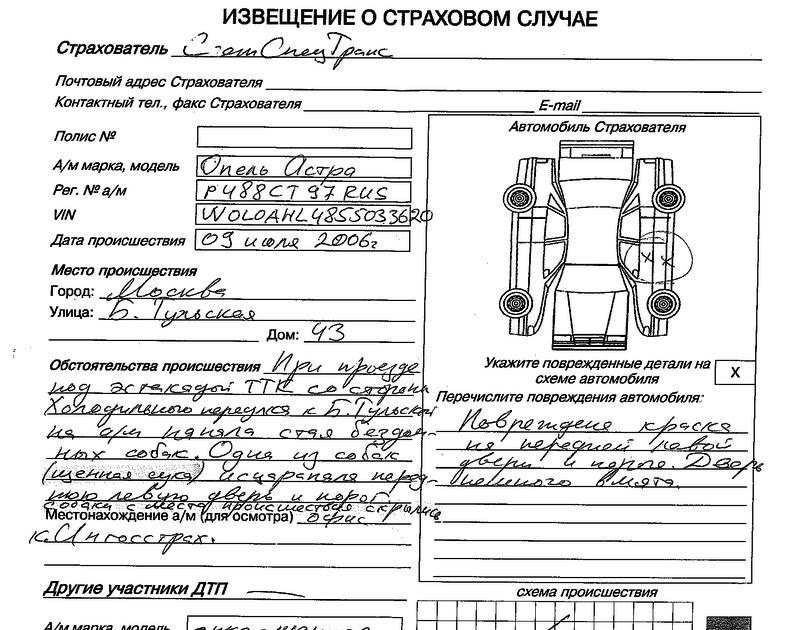 ИЗВЕЩЕНИЕ О СТРАХОВОМ СЛУЧАЕ
Страхователь СпецТранс
Почтовый адрес Страхователя
Контактный тел., факс Страхователя E-mail
Полис №
А/м марка, модель Опель Астра
Рег. № а/м Р488СТ 97 RUS
VIN W0L0AHL4855033620
Дата происшествия 09 июля 2006г
Место происшествия
Город: Москва
Улица: Б. Тульская
Дом: 43
Обстоятельства происшествия При проезде
под эстакадой ТТК со стороны
Холодильного переулка к Б. Тульской
на а/м напала стая бездом-
ных собак. Одна из собак
(щенная сука) исцарапала перед-
нюю левую дверь и порог.
собаки с места происшествия скрылись
Местонахождение а/м (для осмотра) офис
к. Ингосстрах.
Другие участники ДТП —
А/м марка, модель
Автомобиль Страхователя
x x
Укажите поврежденные детали на
схеме автомобиля X
Перечислите повреждения автомобиля:
Повреждена краска
на передней левой
двери и пороге. Дверь
немного вмята.
схема происшествия